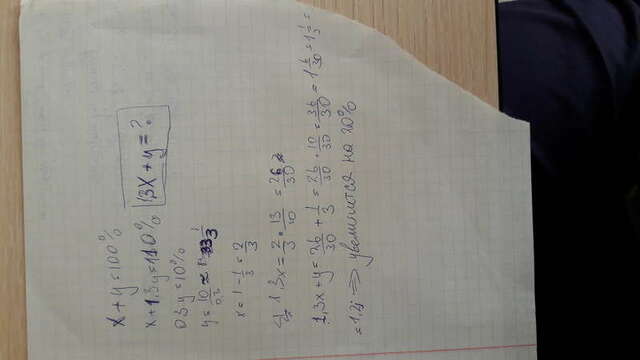 x + y = 100%
x + 1,3y = 110%
1,3x + y = ?
0,3y = 10%
y = 10/0,3 ≈ 1/3
x = 1 - 1/3 = 2/3
1,3x = 2/3 · 13/10 = 26/30
1,3x + y = 26/30 + 1/3 = 26/30 + 10/30 = 36/30 = 1 6/30 = 1 1/5 =
= 1,2 ⇒ увеличится на 20%